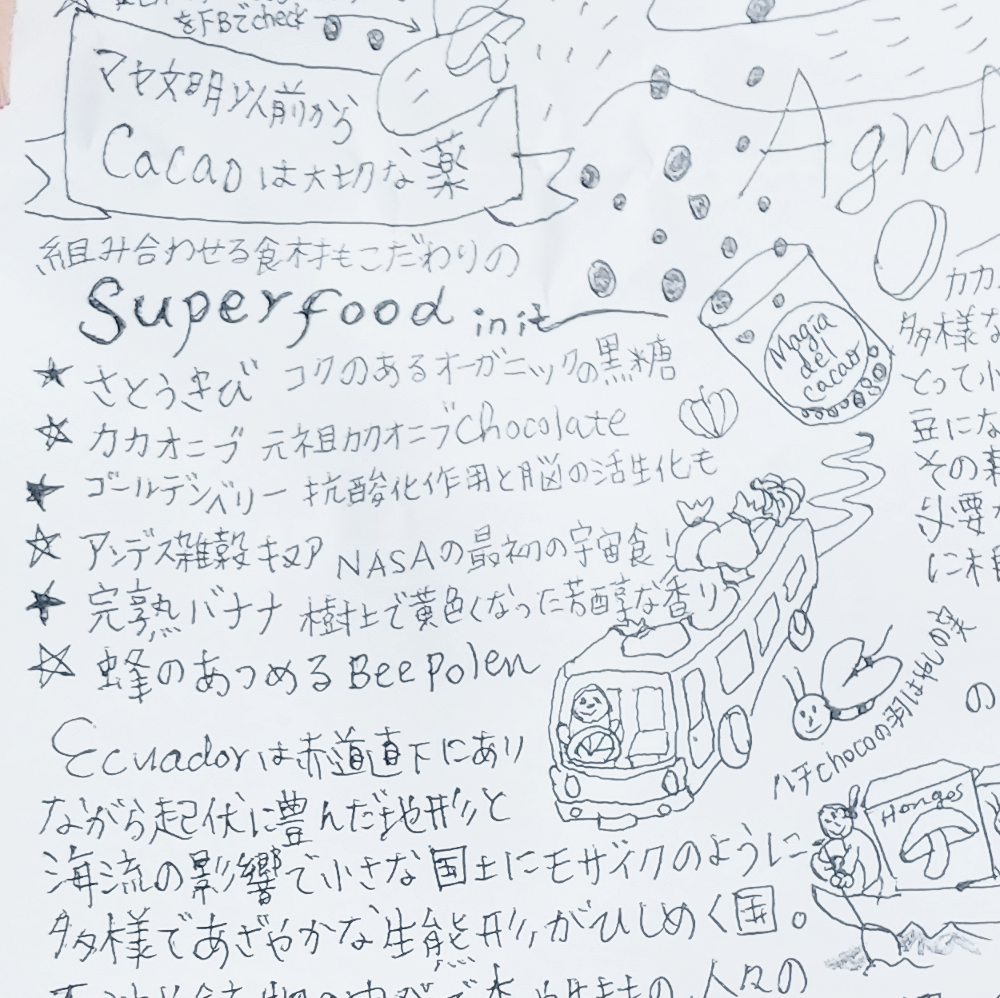 をFBでcheck
マヤ文明以前から
Cacaoは大切な薬
Agrof
組み合わせる食材もこだわりの
Superfood in it
★ さとうきび コクのあるオーガニックの黒糖
☆ カカオニブ 元祖カカオニブChocolate
★ ゴールデンベリー 抗酸化作用と脳の活生化も
☆ アンデス雑穀キヌア NASAの最初の宇宙食!
★ 完熟バナナ 樹上で黄色くなった芳醇な香り
☆ 蜂のあつめるBee polen
Magia
del
cacao
カカ
多様な
とって小
豆にな
その
必要
に木
Ecuadorは赤道直下にあり
ながら起伏に豊んだ地形と
海流の影響で小さな国土にモザイクのように
多様であざやかな生能形がひしめく国。
ハチchocoの羽はやしの実
の
Hongos
人々の